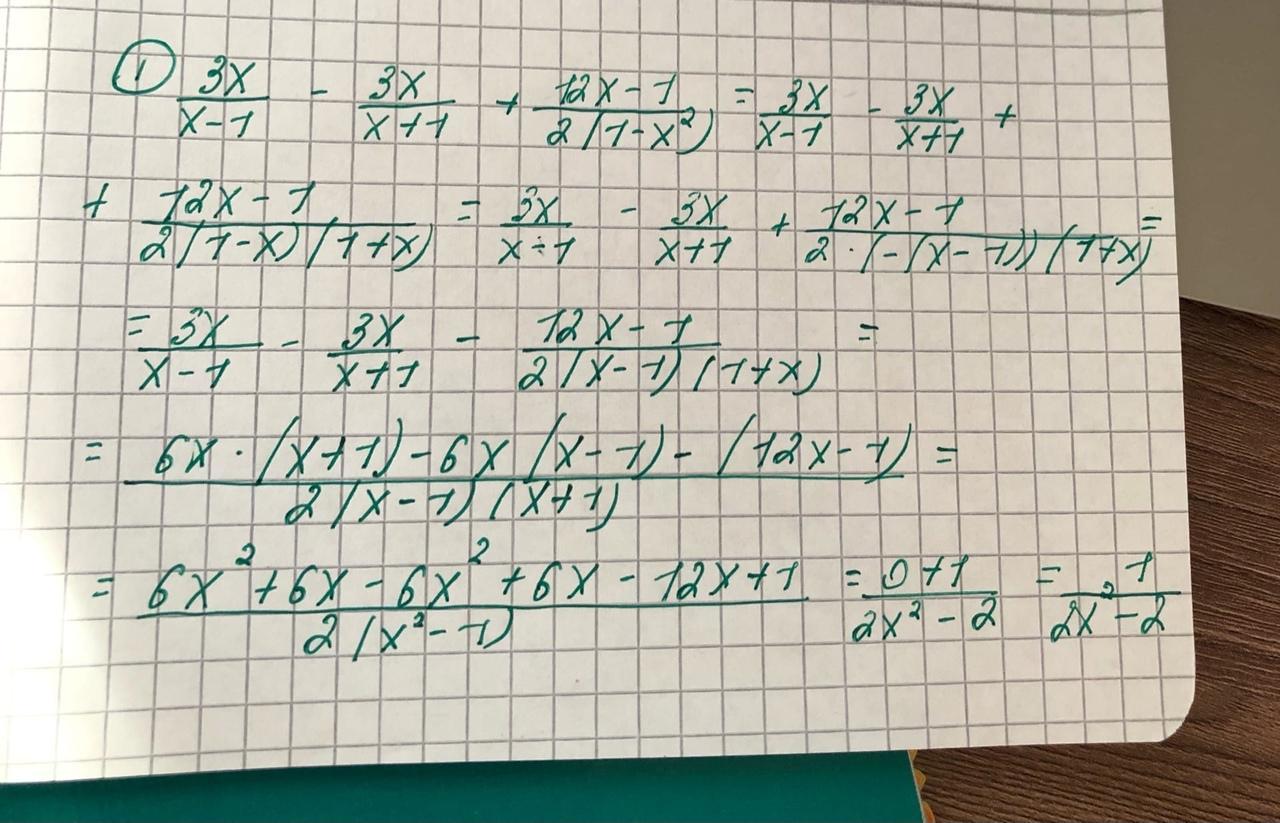 ① 3x/(x-1) - 3x/(x+1) + (12x-1)/(2(1-x²)) = 3x/(x-1) - 3x/(x+1) +
+ (12x-1)/(2(1-x)(1+x)) = 3x/(x÷1) - 3x/(x+1) + (12x-1)/(2·(-(x-1))(1+x)) =
= 3x/(x-1) - 3x/(x+1) - (12x-1)/(2(x-1)(1+x)) =
= (6x·(x+1)-6x(x-1)-(12x-1))/(2(x-1)(x+1)) =
= (6x²+6x-6x²+6x-12x+1)/(2(x²-1)) = (0+1)/(2x²-2) = 1/(2x²-2)